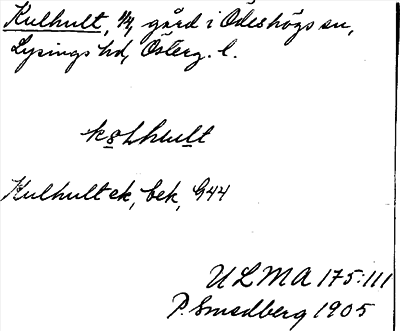 Kulhult, 1/4, gård i Ödeshögs sn,
Lysings hd, Österg. l.
Kulhult ek, bek, G44
ULMA 175:111
P. Smedberg 1905